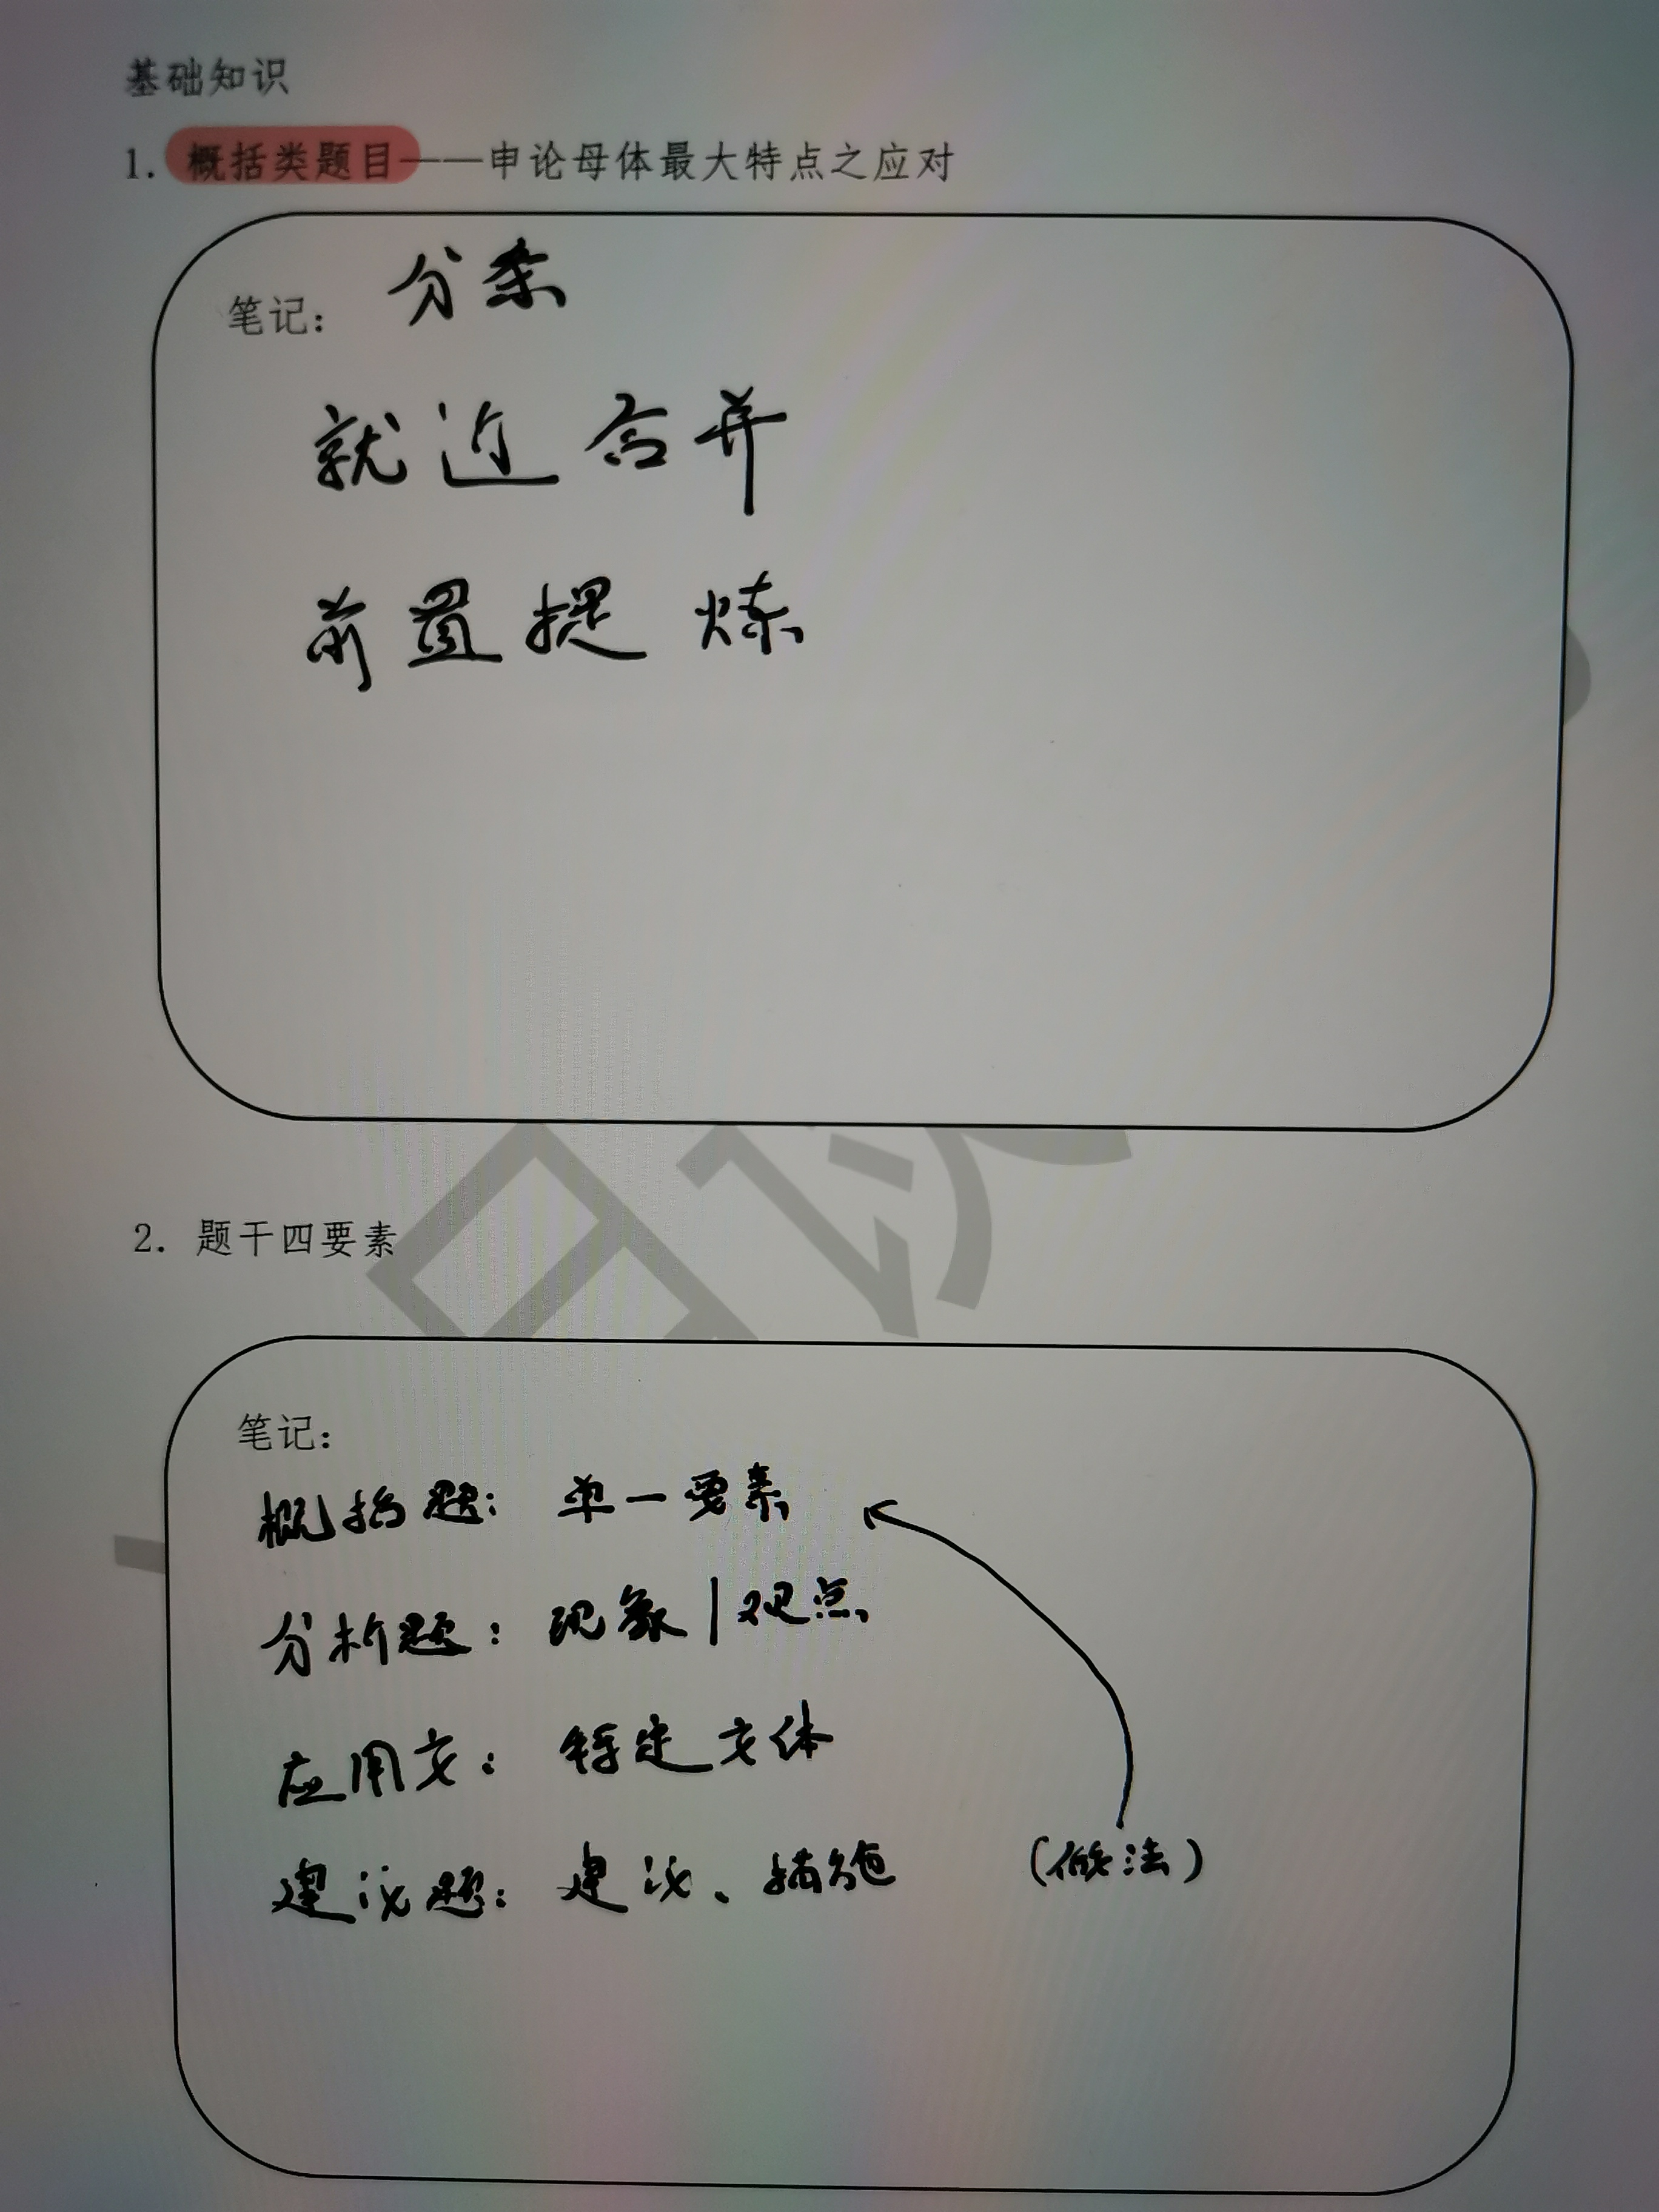 基础知识
1. 概括类题目——申论母体最大特点之应对
笔记： 分条
就近合并
前置提炼
2. 题干四要素
笔记：
概括题：单一要素
分析题：现象|观点
应用文：特定文体
建议题：建议、措施 （做法）